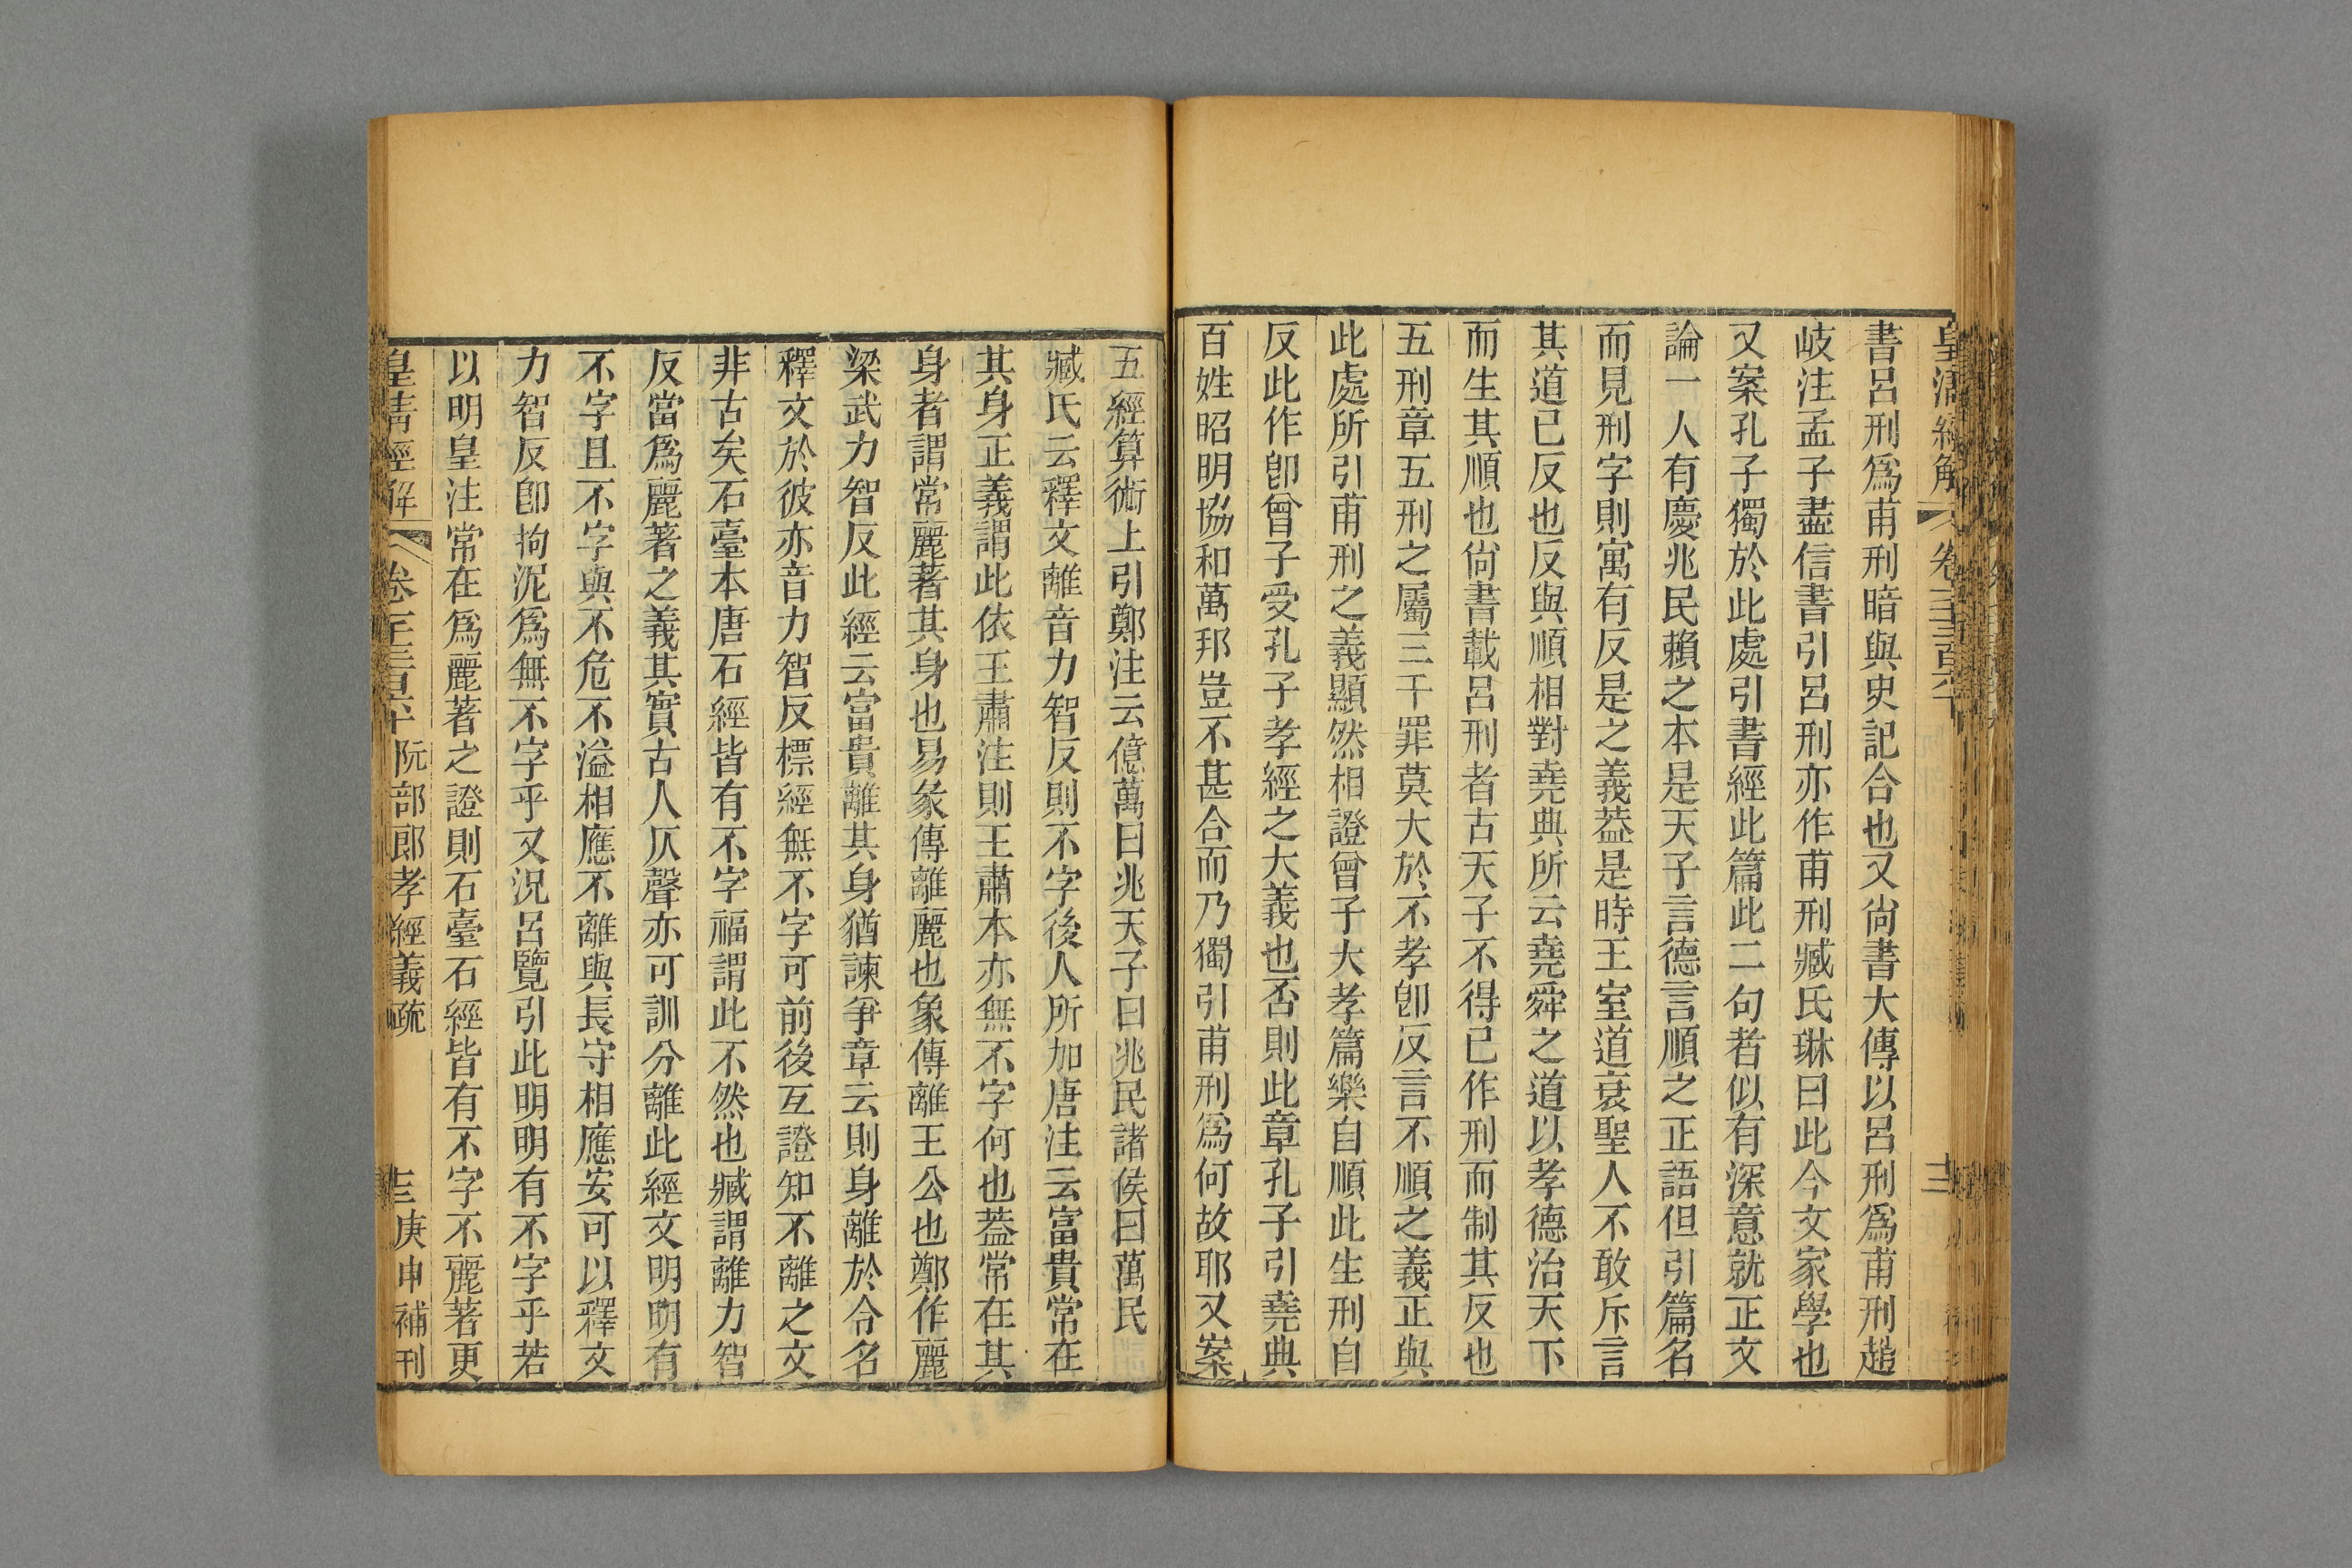 書呂刑爲甫刑暗與史記合也又尙書大傳以呂刑爲甫刑趙
岐注孟子盡信書引呂刑亦作甫刑臧氏琳曰此今文家學也
又案孔子獨於此處引書經此篇此二句者似有深意就正文
論一人有慶兆民賴之本是天子言德言順之正語但引篇名
而見刑字則寓有反是之義葢是時王室道衰聖人不敢斥言
其道已反也反與順相對堯典所云堯舜之道以孝德治天下
而生其順也尙書載呂刑者古天子不得已作刑而制其反也
五刑章五刑之屬三千罪莫大於不孝卽反言不順之義正與
此處所引甫刑之義顯然相證曾子大孝篇樂自順此生刑自
反此作卽曾子受孔子孝經之大義也否則此章孔子引堯典
百姓昭明協和萬邦豈不甚合而乃獨引甫刑爲何故耶又案
五經算術上引鄭注云億萬曰兆天子曰兆民諸侯曰萬民
臧氏云釋文離音力智反則不字後人所加唐注云富貴常在
其身正義謂此依王肅注則王肅本亦無不字何也葢常在其
身者謂常麗著其身也易彖傳離麗也象傳離王公也鄭作麗
梁武力智反此經云富貴離其身猶諫爭章云則身離於令名
釋文於彼亦音力智反標經無不字可前後互證知不離之文
非古矣石臺本唐石經皆有不字福謂此不然也臧謂離力智
反當爲麗著之義其實古人仄聲亦可訓分離此經文明明有
不字且不字與不危不溢相應不離與長守相應安可以釋文
力智反卽拘泥爲無不字乎又況呂覽引此明明有不字乎若
以明皇注常在爲麗著之證則石臺石經皆有不字不麗著更
皇清經解 卷 阮部郎孝經義疏 三 庚申補刊